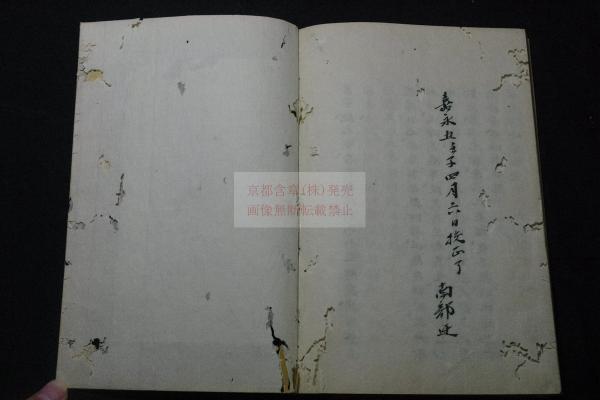 嘉永五壬子四月六日挍正了 南部
京都含章(株)発売
画像無断転載禁止